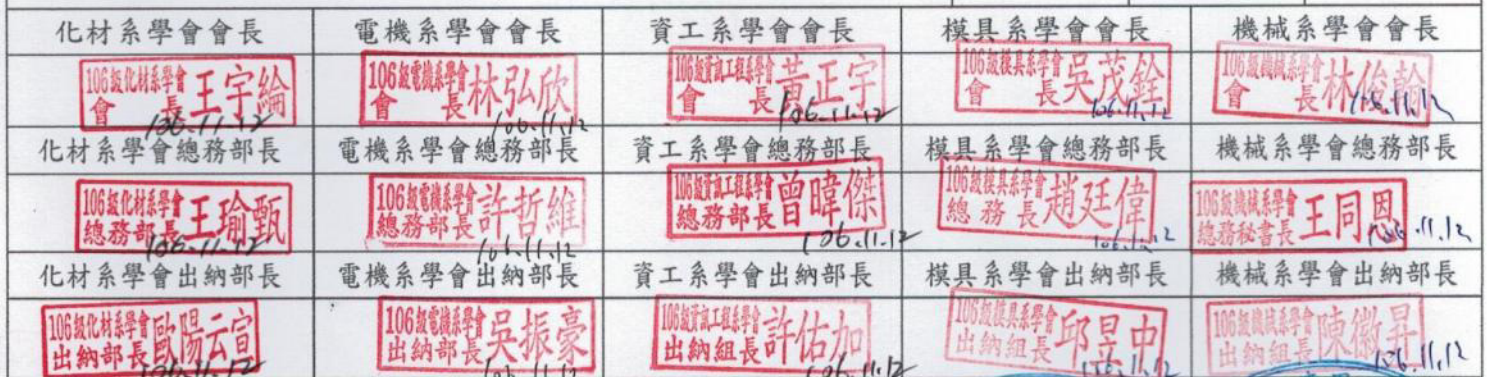 化材系學會會長
電機系學會會長
資工系學會會長
模具系學會會長
機械系學會會長
106級化材系學會
會長王宇綸
106.11.12
106級電機系學會
會長林弘欣
106.11.12
106級資訊工程系學會
會長黃正宇
106.11.12
106級模具系學會
會長吳茂銓
106.11.12
106級機械系學會
會長林俊翰
106.11.12
化材系學會總務部長
電機系學會總務部長
資工系學會總務部長
模具系學會總務部長
機械系學會總務部長
106級化材系學會
總務部長王瑜甄
106.11.12
106級電機系學會
總務部長許哲維
106.11.12
106級資訊工程系學會
總務部長曾暐傑
106.11.12
106級模具系學會
總務長趙廷偉
106.11.12
106級機械系學會
總務秘書長王同恩
106.11.12
化材系學會出納部長
電機系學會出納部長
資工系學會出納部長
模具系學會出納部長
機械系學會出納部長
106級化材系學會
出納部長歐陽云宣
106.11.12
106級電機系學會
出納部長吳振豪
106.11.12
106級資訊工程系學會
出納組長許佑加
106.11.12
106級模具系學會
出納組長邱昱中
106.11.12
106級機械系學會
出納組長陳徽昇
106.11.12